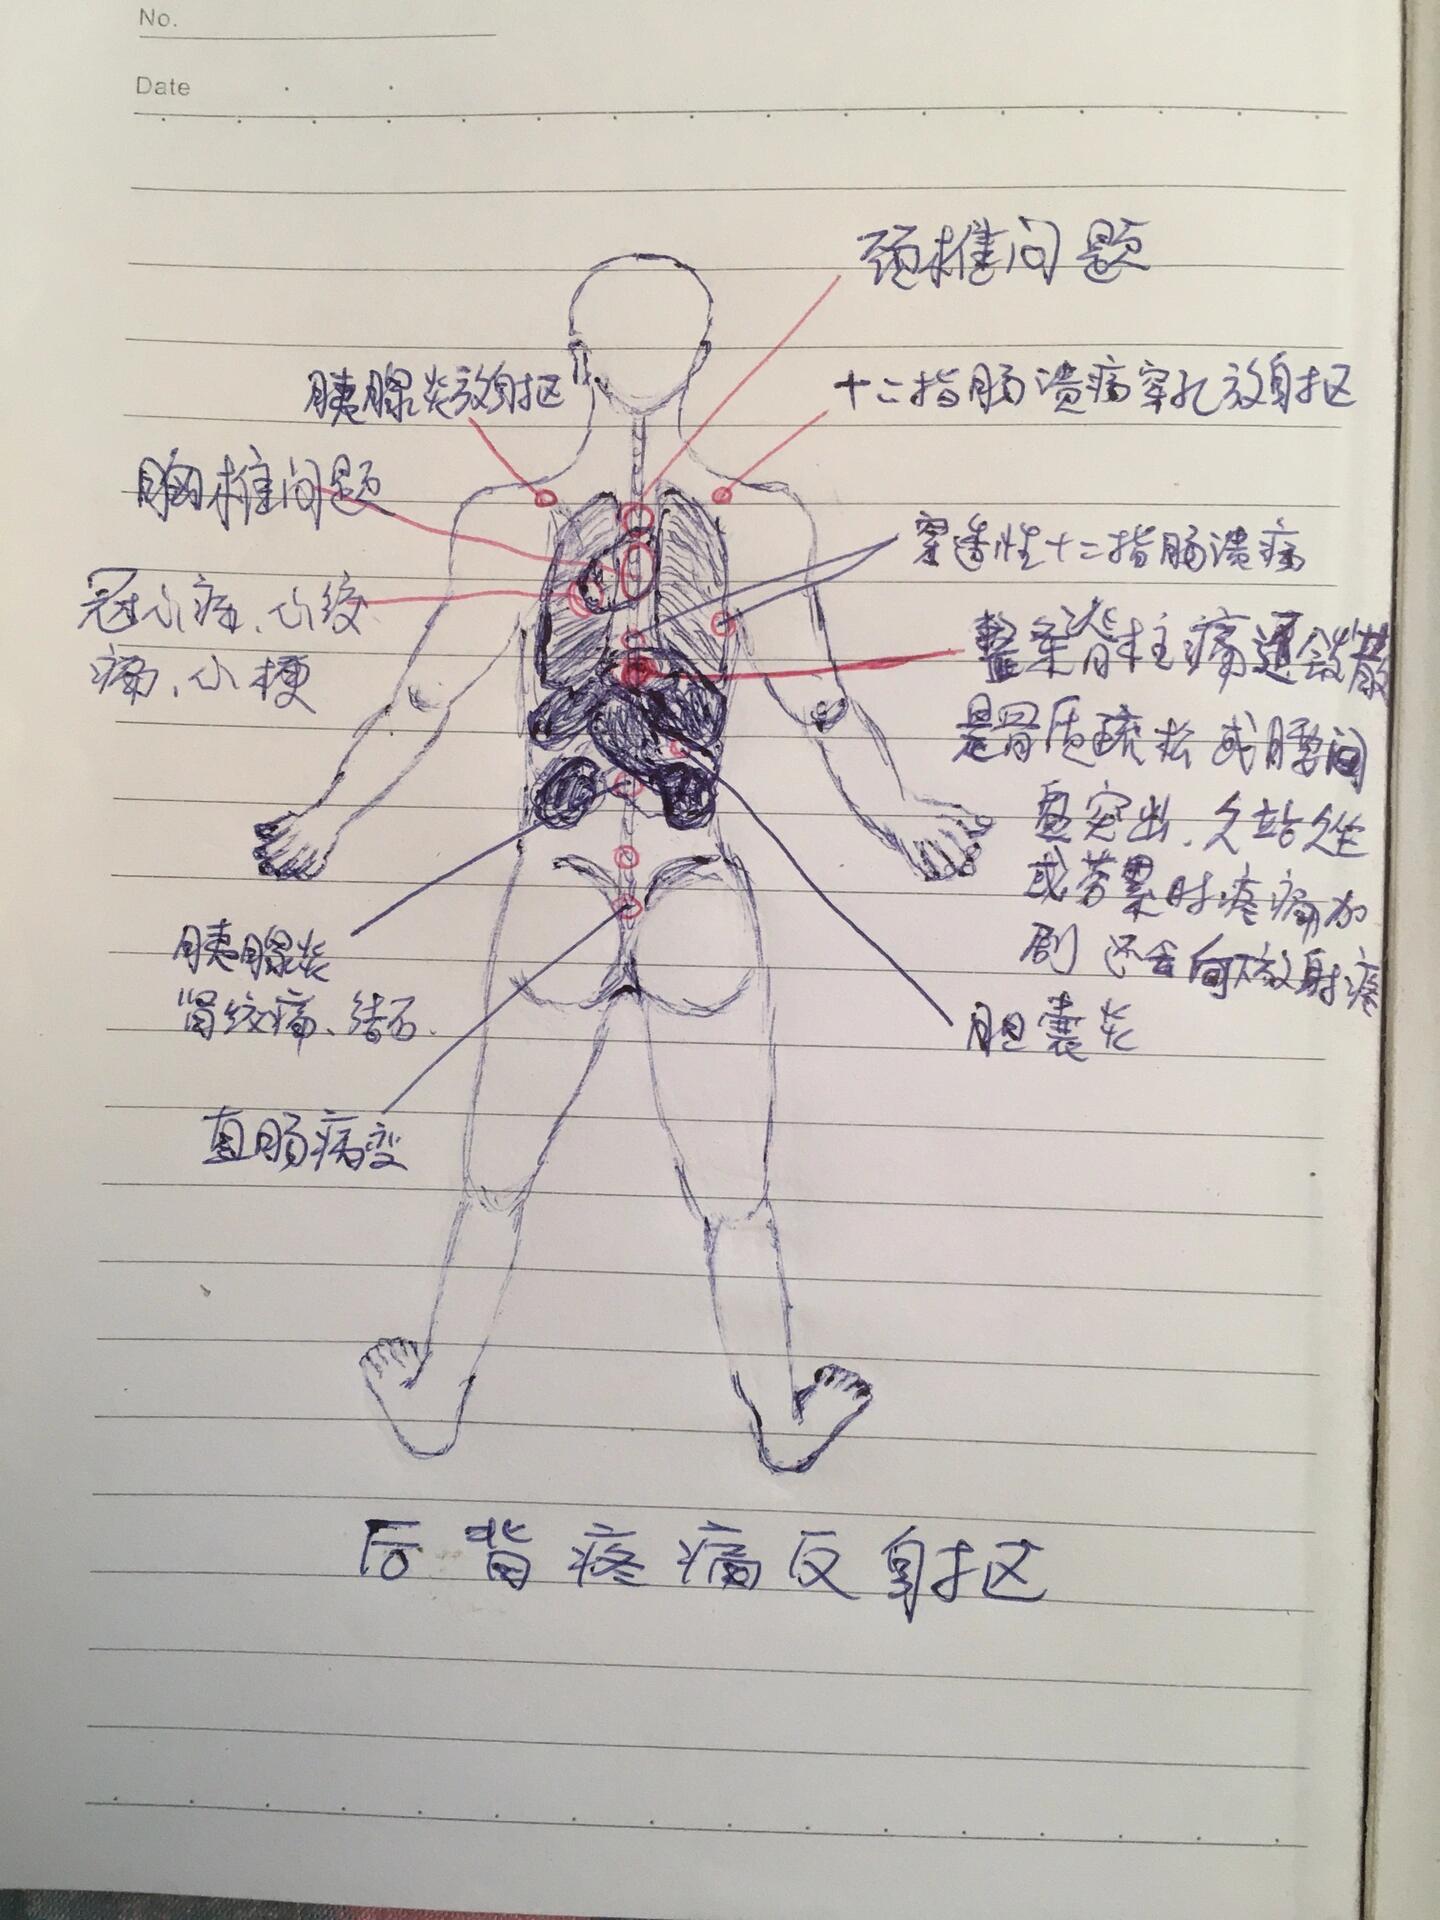 No.
Date
颈椎问题
胰腺炎放射抠
十二指肠溃疡穿孔放射抠
胸椎问题
穿透性十二指肠溃疡
冠心病、心绞
痛、心梗
整条脊柱痛
是骨质疏松或腰间
盘突出、久站久坐
或劳累时疼痛加
剧 还会向下放射疼
胰腺炎
肾绞痛、结石.
胆囊炎
直肠病变
后背疼痛反射抠